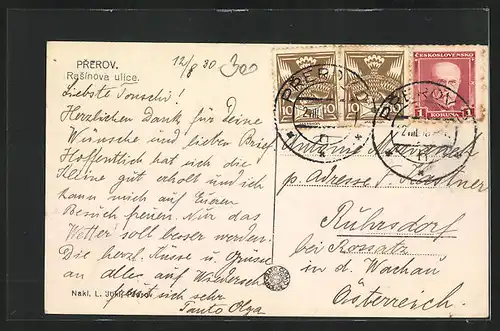 PŘEROV.
Rašínova ulice.
12/8 30
300
Liebste Tonschi!
Herzlichen Dank für Deine
Wünsche und lieben Brief
Hoffentlich hat sich die
Kleine gut erholt und ich
kann mich auf Eueren
Besuch freuen. Nur das
Wetter soll besser werden.
Die herzl. Küsse u. Grüsse
an alles auf Wiederseh
freut sich sehr
Tante Olga
Nakl. L.
10
10
ČESKOSLOVENSKO
KORUNA
PŘEROV
PŘEROV
p. Adresse
Rührsdorf
bei Rossatz
in d. Wachau
Österreich.